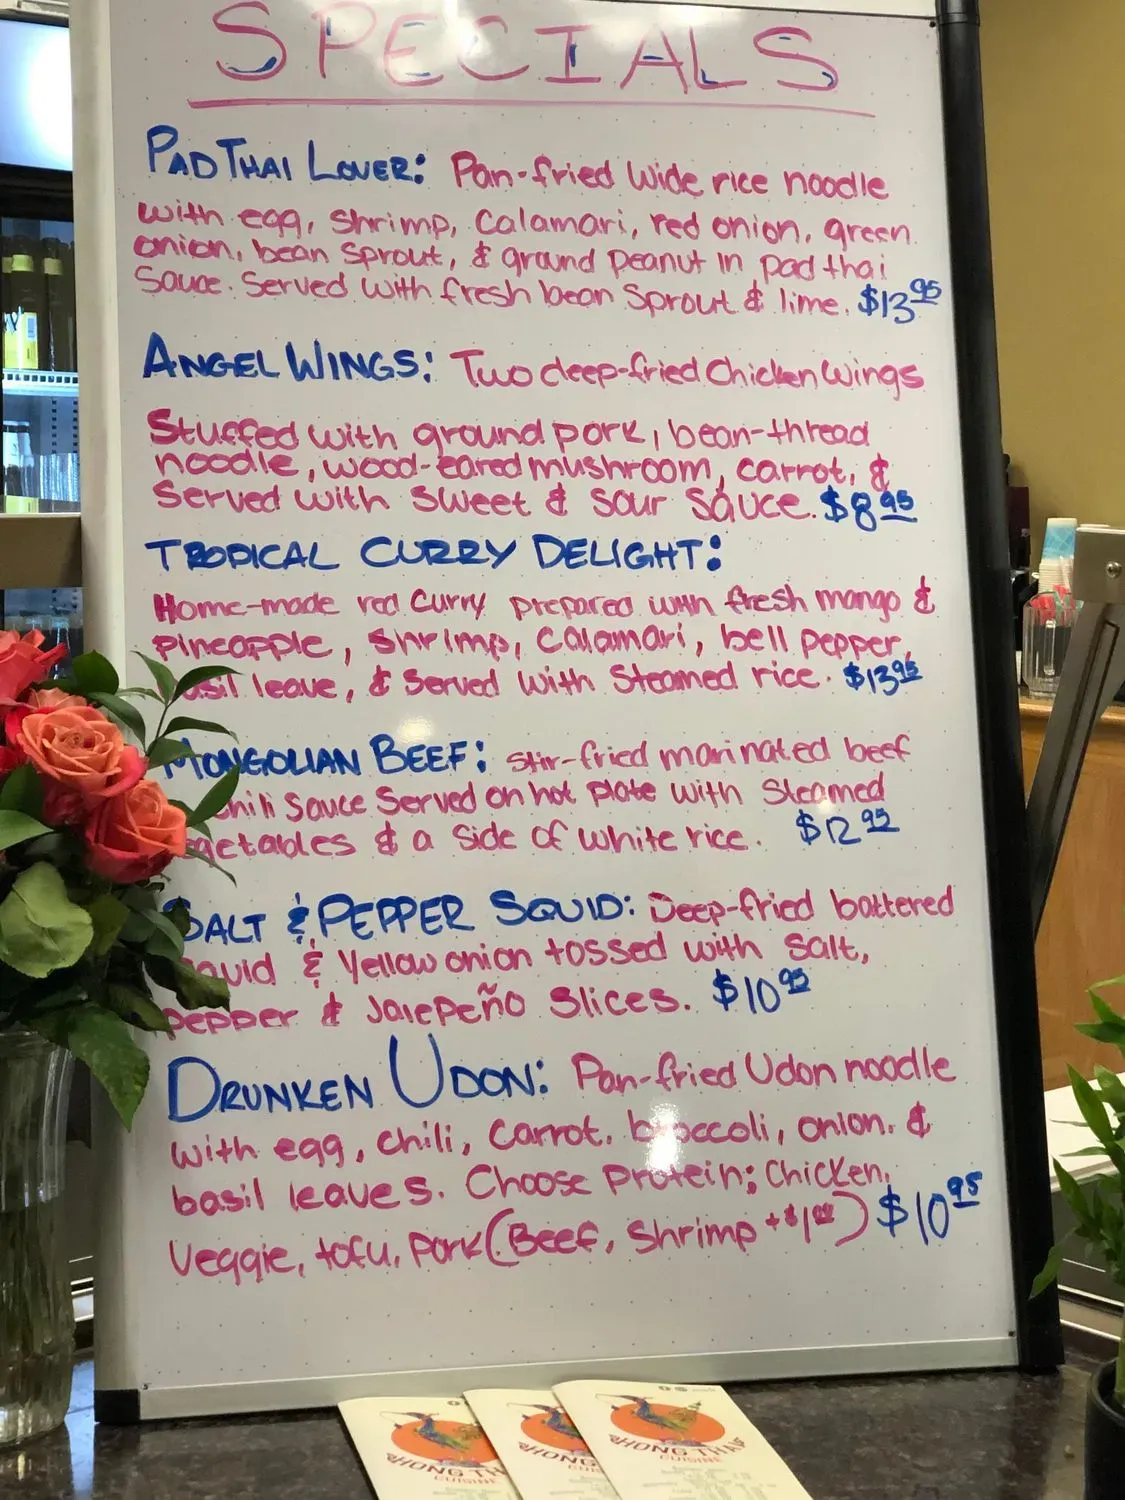 SPECIALS
PAD THAI LOVER: Pan-fried wide rice noodle
with egg, shrimp, calamari, red onion, green
onion, bean sprout, & ground peanut in pad thai
sauce. Served with fresh bean sprout & lime. $13.95
ANGEL WINGS: Two deep-fried Chicken Wings
Stuffed with ground pork, bean-thread
noodle, wood-eared mushroom, carrot, &
served with sweet & sour sauce. $8.95
TROPICAL CURRY DELIGHT:
Home-made red curry prepared with fresh mango &
pineapple, shrimp, calamari, bell pepper,
asil leave, & served with steamed rice. $13.95
MONGOLIAN BEEF: stir-fried marinated beef
chili sauce served on hot plate with steamed
getables & a side of white rice. $12.95
SALT & PEPPER SQUID: Deep-fried battered
squid & yellow onion tossed with salt,
pepper & Jalepeño slices. $10.95
DRUNKEN UDON: Pan-fried Udon noodle
with egg, chili, carrot, broccoli, onion, &
basil leaves. Choose Protein; Chicken,
Veggie, tofu, pork (Beef, Shrimp +$1.00) $10.95
HONG TH
CUISINE
HONG
HONG THAI
CUISINE